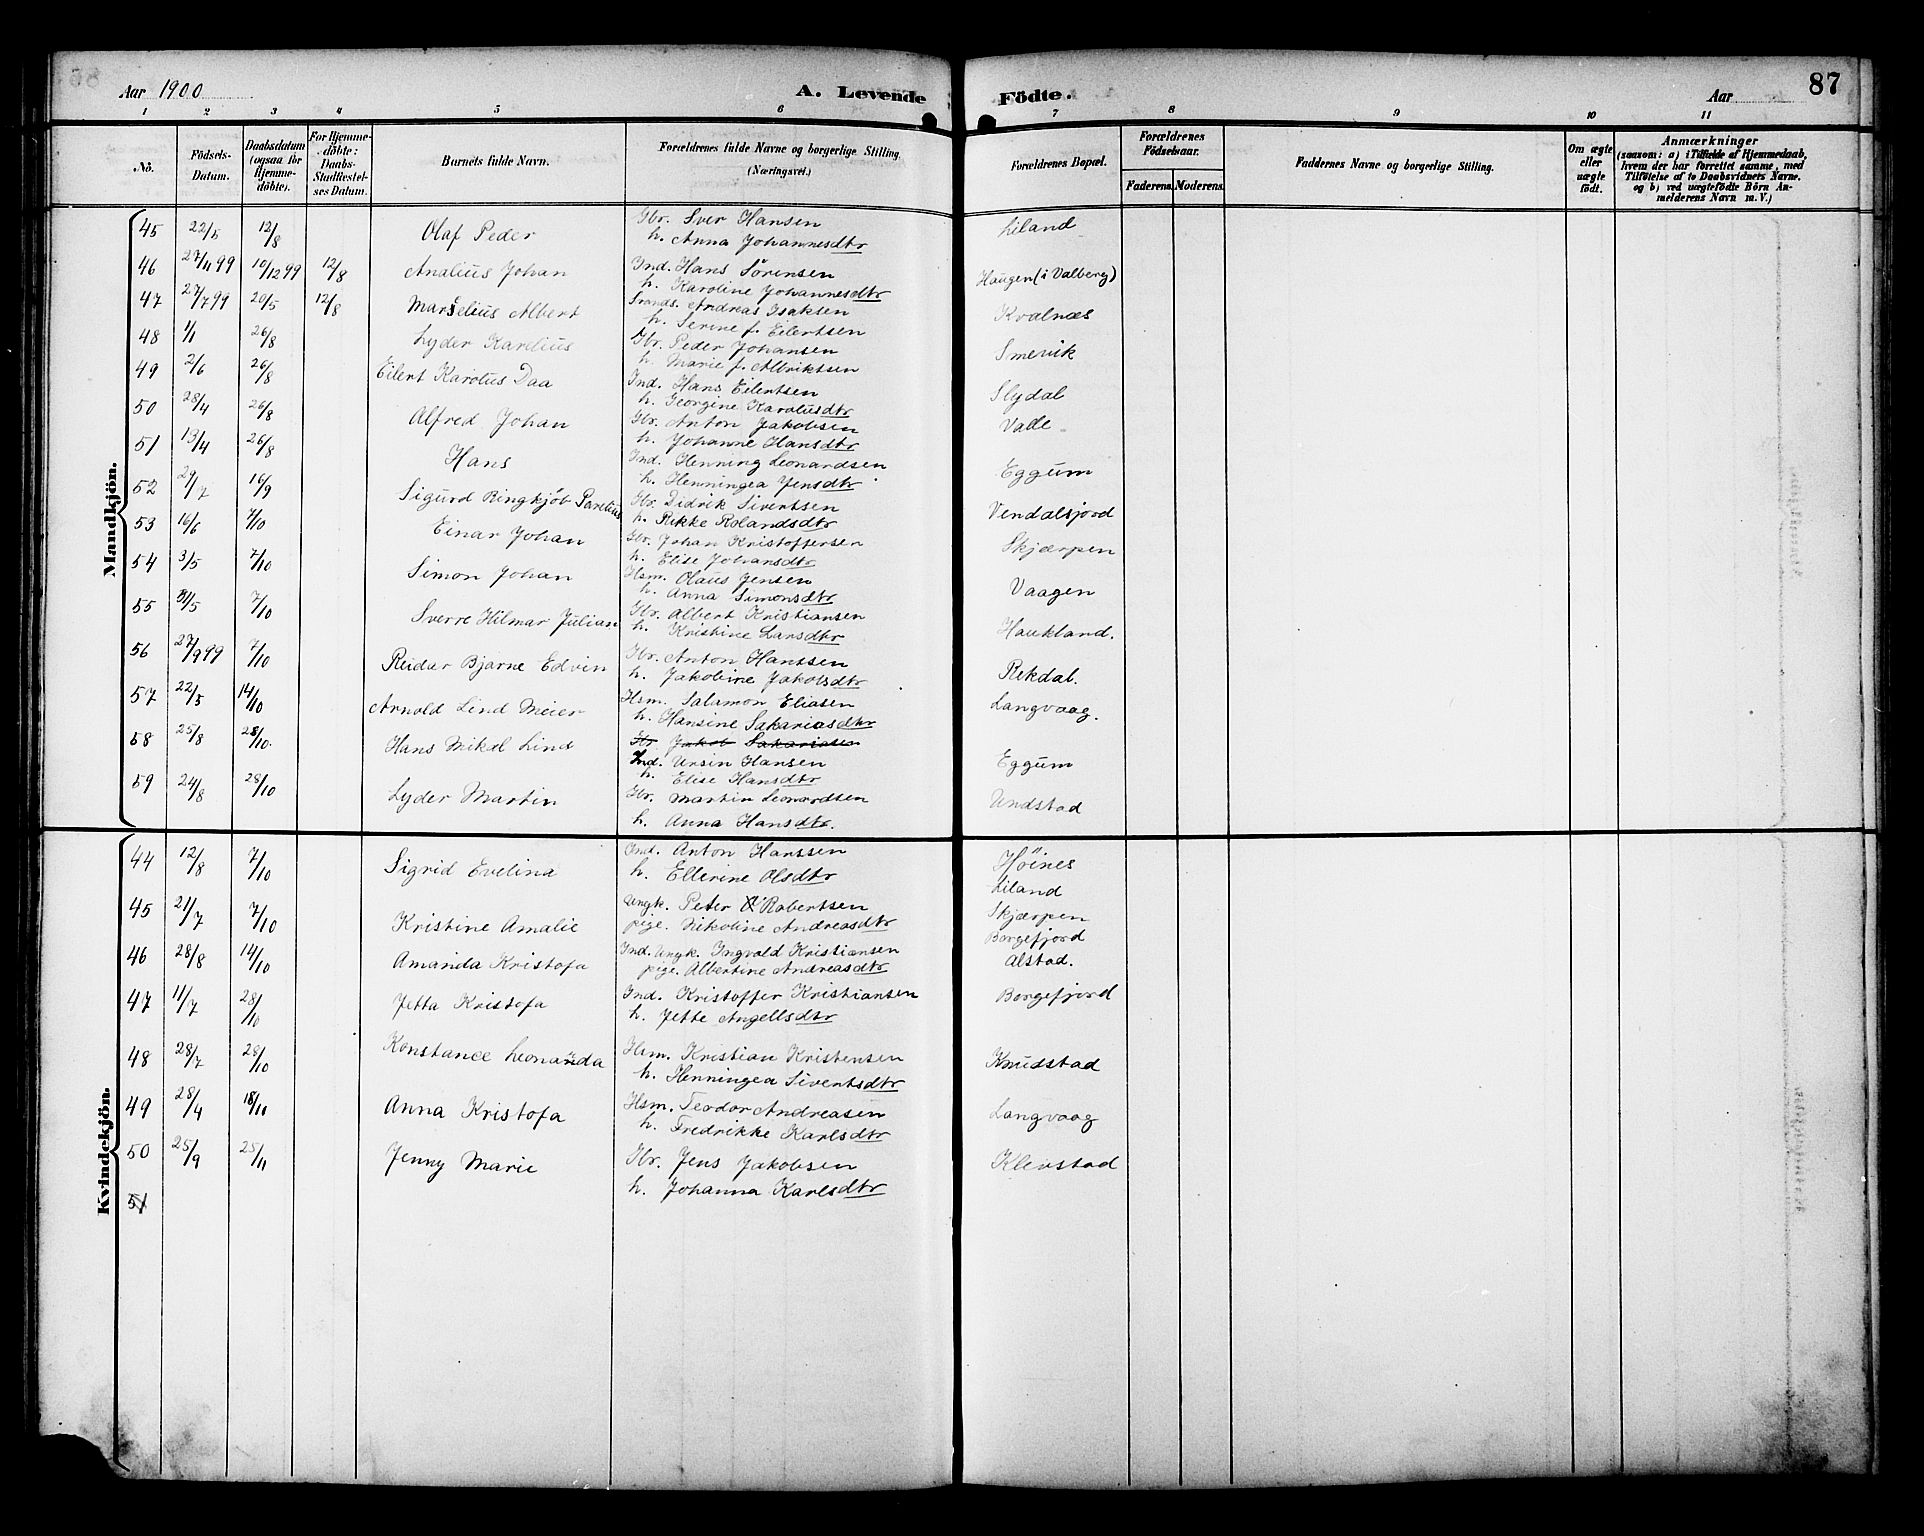 Aar 1900
A. Levende Födte.
Aar
87
1 2 3 4 5 6 7 8 9 10 11
No.
Födsels-Datum.
Daabsdatum (ogsaa for Hjemme-döbte).
For Hjemme-döbte: Daabs-Stadfæstel-ses Datum.
Barnets fulde Navn.
Forældrenes fulde Navne og borgerlige Stilling. (Næringsvei.)
Forældrenes Bopæl.
Forældrenes Födselsaar.
Faderens. Moderens.
Faddernes Navne og borgerlige Stilling.
Om ægte eller uægte födt.
Anmærkninger (saasom: a) i Tilfælde af Hjemmedaab, hvem der har forrettet samme, med Tilföielse af to Daabsvidnets Navne, og b) ved uægtefödte Börn An-melderens Navn m. V.)
Mandkjön.
45 22/5 12/8 Olaf Peder Gbr. Sver Hansen Liland
h. Anna Johannesdtr
46 27/11 99 10/12 99 12/8 Analius Johan Ind. Hans Sörensen Haugen (i Valberg)
h. Karoline Johannesdtr
47 27/7 99 20/5 12/8 Marselius Albert Strands. Andreas Isaksen Kvalnæs
h. Serine f. Eilertsen
48 1/1 26/8 Lyder Karelius Gbr. Peder Johansen Smervik
h. Marie f. Albriktsen
49 2/6 26/8 Eilert Karolus Daa Ind. Hans Eilertsen Slydal
h. Georgine Karolusdtr
50 28/4 26/8 Alfred Johan Gbr. Anton Jakobsen Valle
h. Johanne Hansdtr
51 13/4 26/8 Hans Ind. Henning Leonardsen Eggum
h. Henningea Jensdtr
52 29/7 16/9 Sigurd Ringkjöb Parelius Gbr. Didrik Sivertsen Vendalsjord
h. Rikke Rolandsdtr
53 16/6 7/10 Einar Johan Gbr. Johan Kristoffersen Skjærpen
h. Elise Johansdtr
54 3/5 7/10 Simon Johan Hsm. Olaus Jensen Vaagen
h. Anna Simonsdtr
55 31/5 7/10 Sverre Hilmar Julian Gbr. Albert Kristiansen Haukland.
h. Kristine Larsdtr
56 27/9 99 7/10 Reidar Bjarne Edvin Gbr. Anton Hanssen Rekdal.
h. Jakobine Jakobsdtr
57 22/5 14/10 Arnold Lind Meier Hsm. Salamon Eliasen Langvaag.
h. Hansine Sakariasdtr
58 25/8 28/10. Hans Mikal Lind Gbr Jakob Sakariasen
Ind. Ursin Hansen Eggum
h. Elise Hansdtr
59 24/8 28/10 Lyder Martin Gbr. Martin Leonardsen Undstad
h. Anna Hansdtr.
Kvindekjön.
44 12/8 7/10 Sigrid Evelina Ind. Anton Hanssen Höines
h. Ellerine Olsdtr Liland
45 21/7 7/10 Kristine Amalie Ungk. Peter Robertsen Skjærpen
pige. Nikoline Andreasdtr Borgefjord
46 28/8 14/10 Amanda Kristofa Ind. Ungk. Ingvald Kristiansen Alstad.
pige. Albertine Andreasdtr
47 11/7 28/10 Jetta Kristofa Ind. Kristoffer Kristiansen Borgefjord
h. Jette Angellsdtr
48 28/7 28/10 Konstance Leonanda Hsm. Kristian Kristensen Knudstad
h. Henningea Sivertsdtr
49 28/4 18/11 Anna Kristofa Hsm. Teodor Andreasen Langvaag
h. Fredrikke Karlsdtr
50 25/9 25/11 Jenny Marie Gbr. Jens Jakobsen Klevstad
h. Johanna Karlsdtr
51